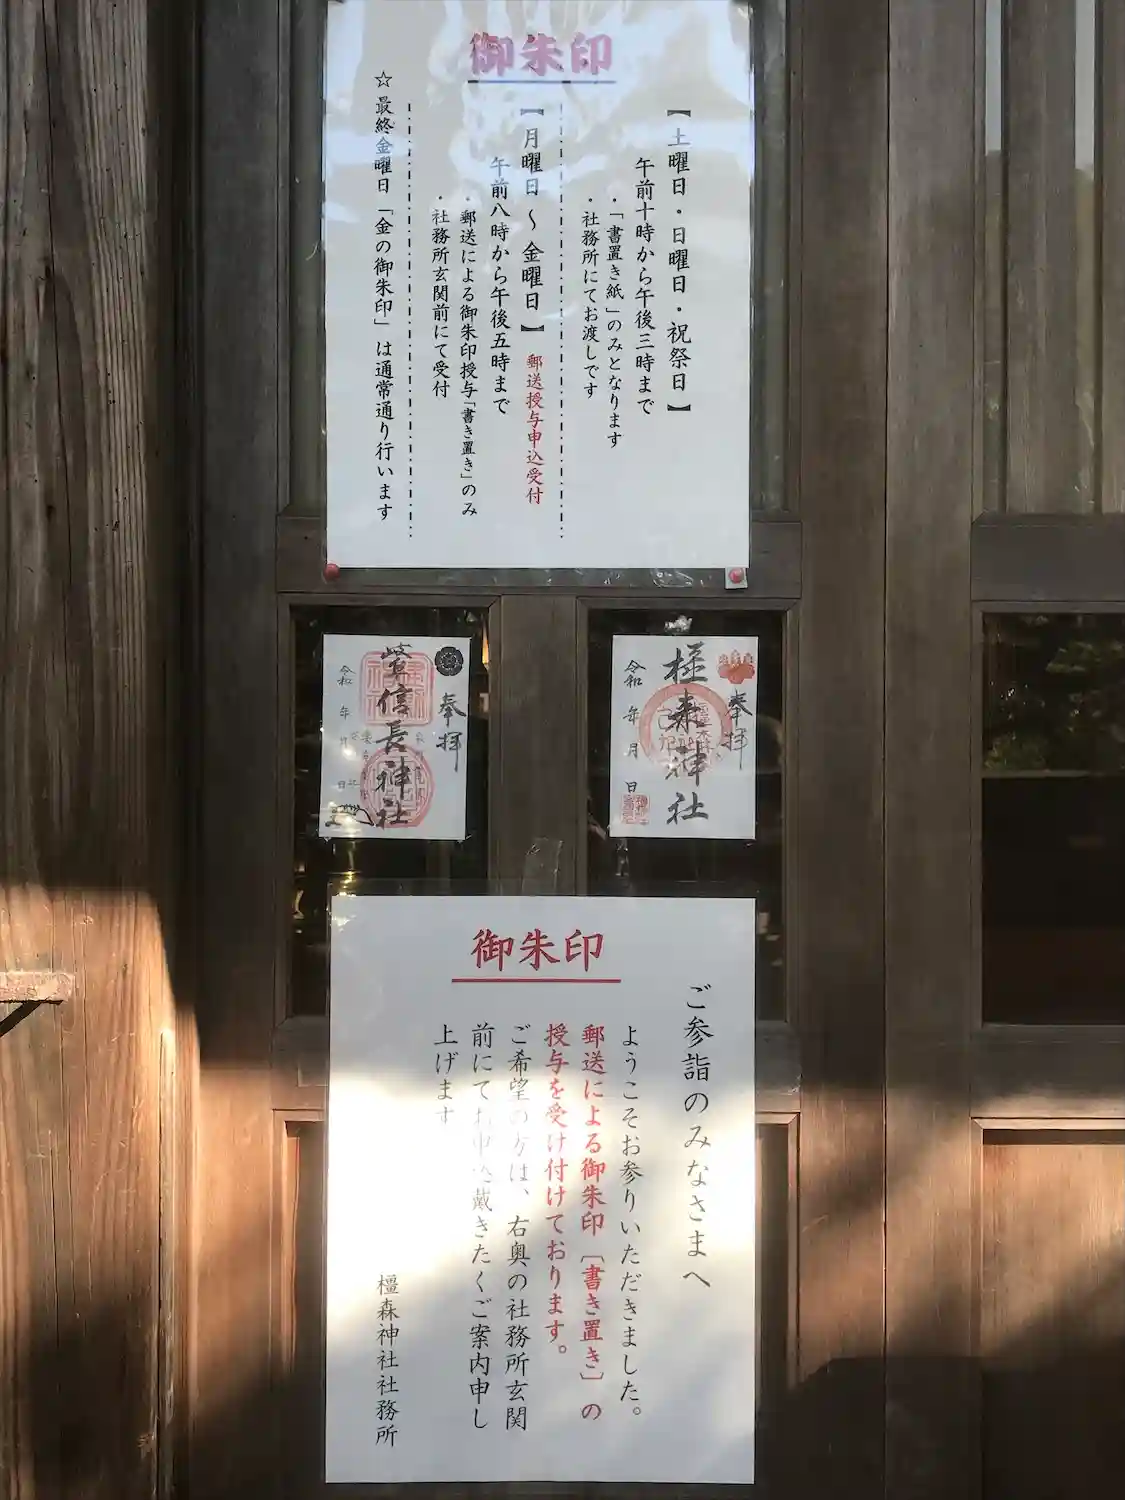 御朱印
【土曜日・日曜日・祝祭日】
午前十時から午後三時まで
・「書置き紙」のみとなります
・社務所にてお渡しです
【月曜日〜金曜日】郵送授与申込受付
午前八時から午後五時まで
・郵送による御朱印授与「書き置き」のみ
・社務所玄関前にて受付
☆最終金曜日「金の御朱印」は通常通り行います
奉拝
信長神社
令和 年 月 日
奉拝
橿森神社
令和 年 月 日
御朱印
ご参詣のみなさまへ
ようこそお参りいただきました。
郵送による御朱印〔書き置き〕の
授与を受け付けております。
ご希望の方は、右奥の社務所玄関
前にてお申込戴きたくご案内申し
上げます
橿森神社社務所